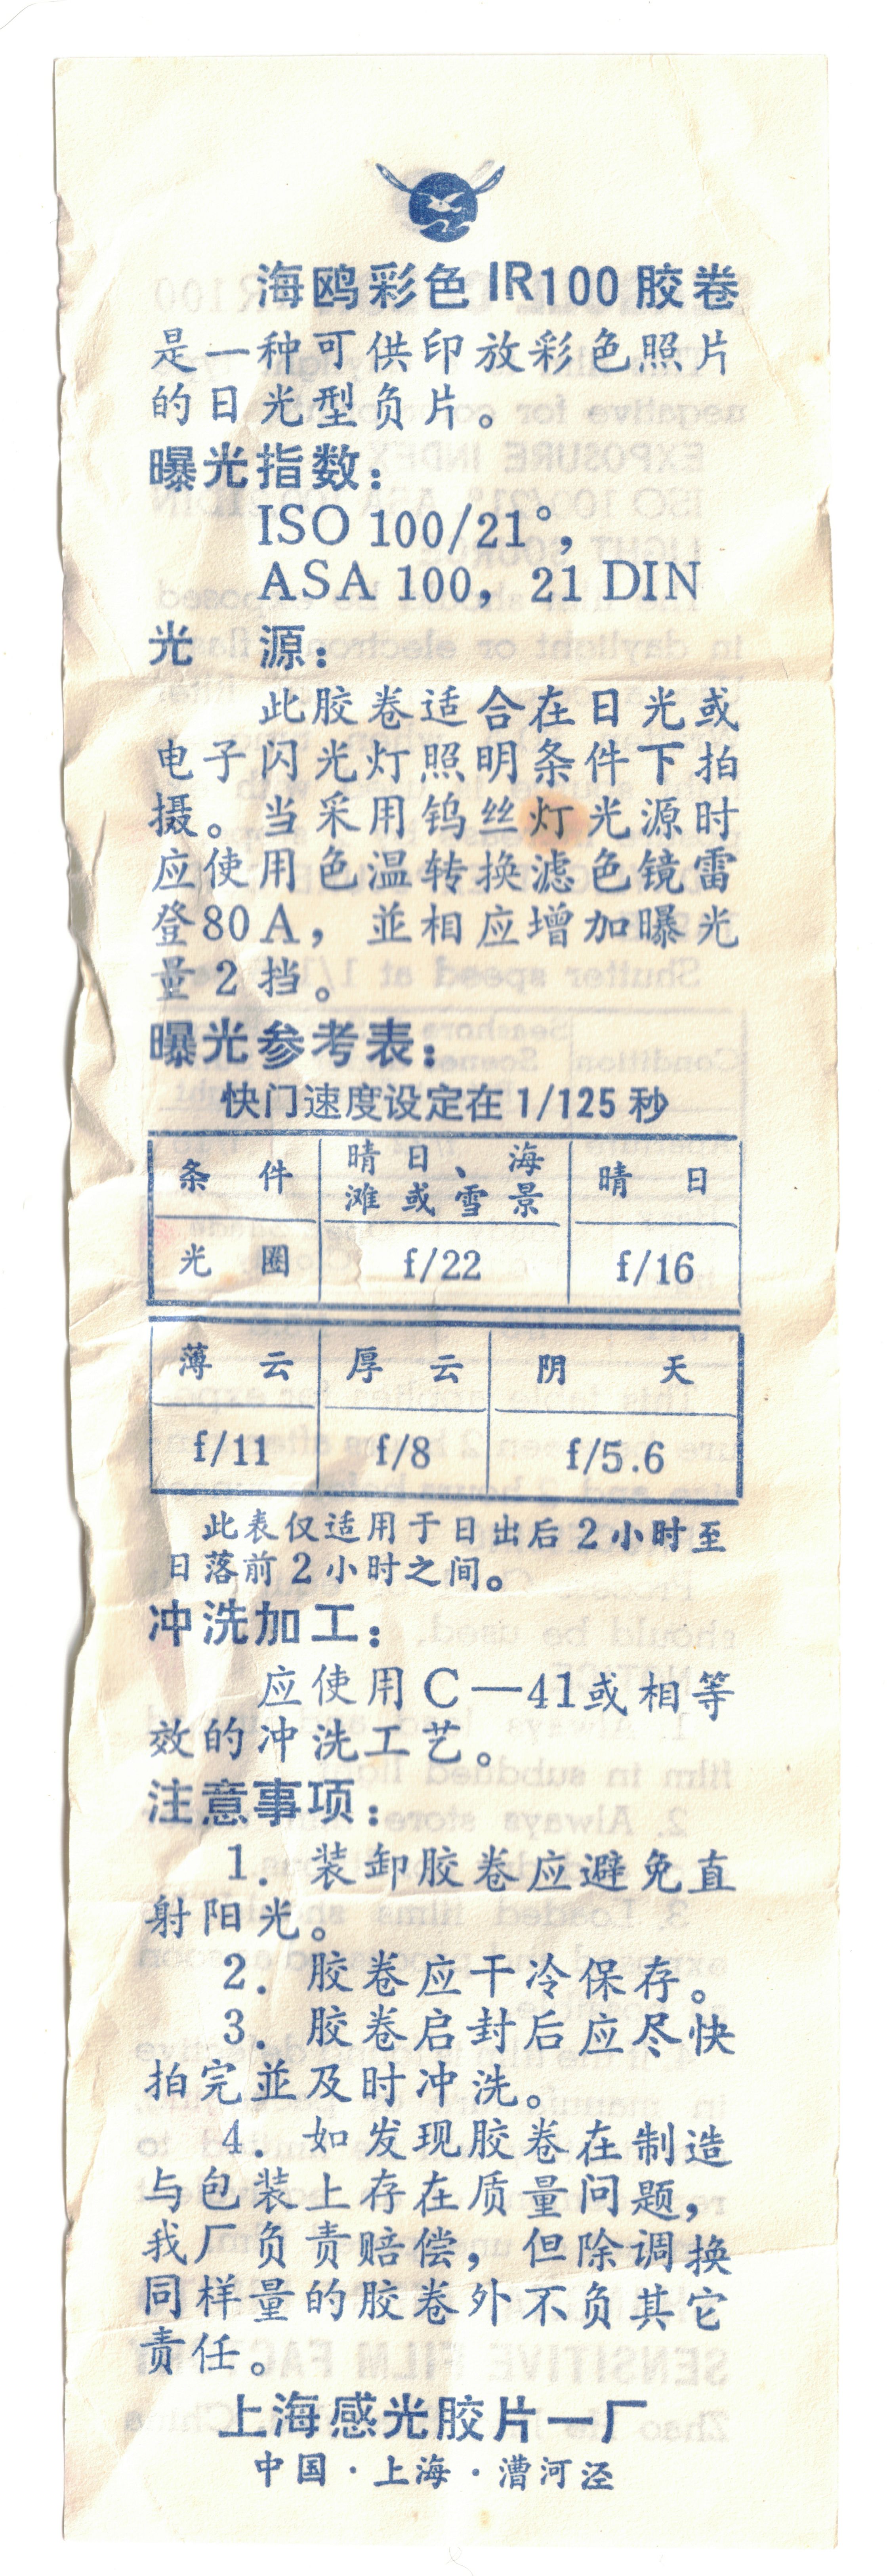 海鸥彩色IR100胶卷
是一种可供印放彩色照片
的日光型负片。
曝光指数：
ISO 100/21°，
ASA 100，21 DIN
光　源：
此胶卷适合在日光或
电子闪光灯照明条件下拍
摄。当采用钨丝灯光源时
应使用色温转换滤色镜雷
登80A，並相应增加曝光
量2挡。
曝光参考表：
快门速度设定在1/125秒
条　件　晴日、海滩或雪景　晴　日
光　圈　f/22　f/16
薄　云　厚　云　阴　天
f/11　f/8　f/5.6
此表仅适用于日出后2小时至
日落前2小时之间。
冲洗加工：
应使用C—41或相等
效的冲洗工艺。
注意事项：
1．装卸胶卷应避免直
射阳光。
2．胶卷应干冷保存。
3．胶卷启封后应尽快
拍完並及时冲洗。
4．如发现胶卷在制造
与包装上存在质量问题，
我厂负责赔偿，但除调换
同样量的胶卷外不负其它
责任。
上海感光胶片一厂
中国·上海·漕河泾